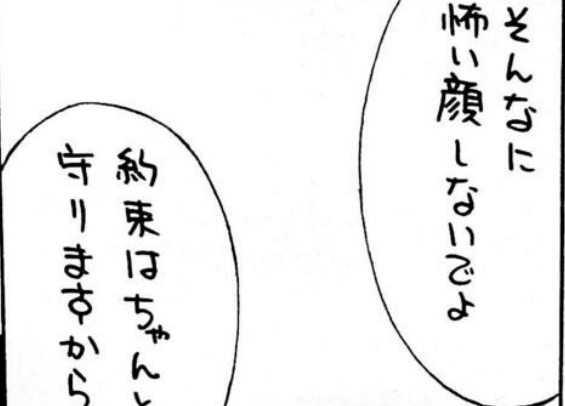 そんなに
怖い顔しないでよ
約束はちゃんと
守りますから